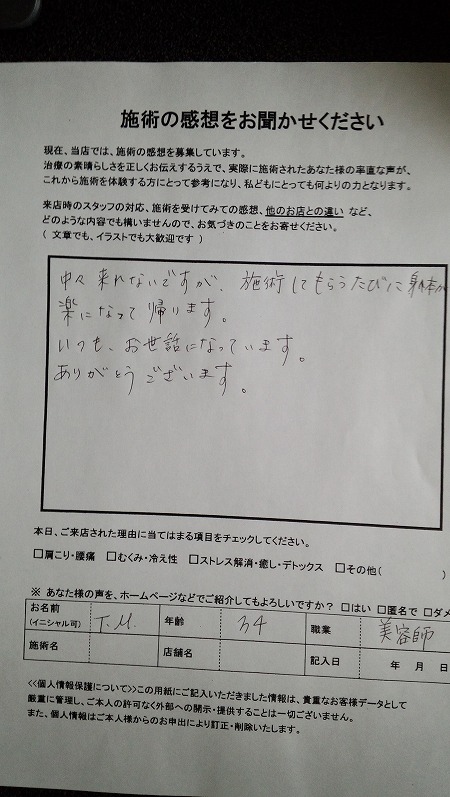 施術の感想をお聞かせください
現在、当店では、施術の感想を募集しています。
治療の素晴らしさを正しくお伝えするうえで、実際に施術されたあなた様の率直な声が、
これから施術を体験する方にとって参考になり、私どもにとっても何よりの力となります。
来店時のスタッフの対応、施術を受けてみての感想、他のお店との違い など、
どのような内容でも構いませんので、お気づきのことをお寄せください。
( 文章でも、イラストでも大歓迎です )
中々 来れないですが、施術してもらうたびに身体が
楽になって帰ります。
いつも、お世話になっています。
ありがとうございます。
本日、ご来店された理由に当てはまる項目をチェックしてください。
□肩こり・腰痛 □むくみ・冷え性 □ストレス解消・癒し・デトックス □その他( )
※ あなた様の声を、ホームページなどでご紹介してもよろしいですか? □はい □匿名で □ダメ
お名前 (イニシャル可) T.M. 年齢 34 職業 美容師
施術名 店舗名 記入日 年 月 日
<<個人情報保護について>>この用紙にご記入いただきました情報は、貴重なお客様データとして
厳重に管理し、ご本人の許可なく外部への開示・提供することは一切ございません。
また、個人情報はご本人様からのお申出により訂正・削除いたします。